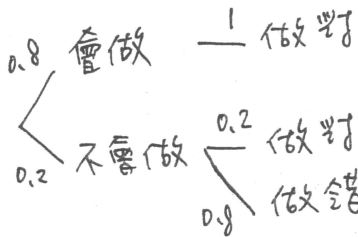 0.8 會做 1 做對
0.2 不會做 0.2 做對
0.8 做錯